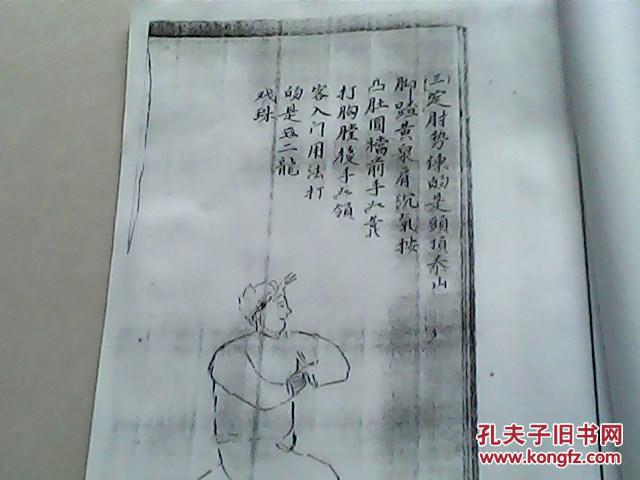 (三)定肘势練的是頭頂泰山
脚踏黄泉肩沉氣按
凸肚圓襠前手如
打胸膛後手如領
客入门用法打
的是 二龍
戏珠
孔夫子旧书网
www.kongfz.com